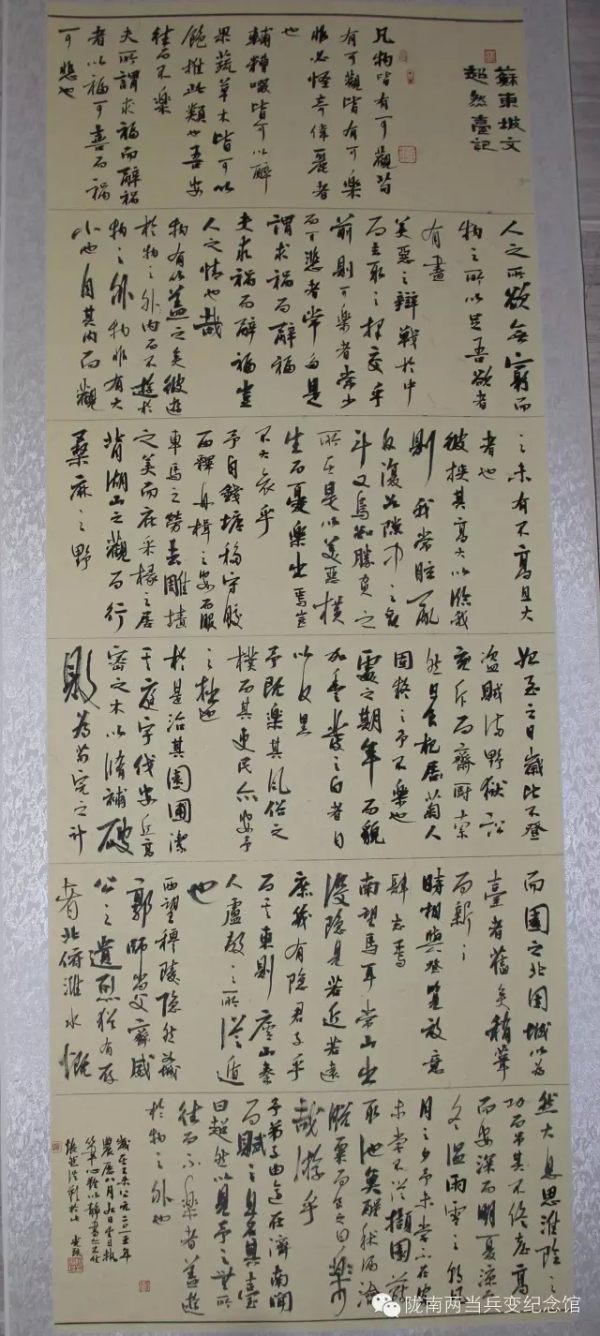 蘇東坡文
超然臺記
凡物皆有可觀苟
有可觀皆有可樂
非必怪奇偉麗者
也
餔糟啜皆可以醉
果蔬草木皆可以
飽推此類也吾安
往而不樂
夫所謂求福而辭禍
者以福可喜而禍
可悲也
人之所欲無窮而
物之所以足吾欲者
有盡
美惡之辯戰於中
而去取之擇交乎
前則可樂者常少
而可悲者常多是
謂求禍而辭福
夫求禍而辭福豈
人之情也哉
物有以蓋之矣彼遊
於物之外內而不遊於
物之外物非有大
小也自其內而觀
之未有不高且大
者也
彼挾其高大以臨我
則我常眩亂
反復如隙中之觀
鬥又烏知勝負之
所在是以美惡橫
生而憂樂出焉豈
不大哀乎
予自錢塘移守膠
西釋舟楫之安而服
車馬之勞去雕牆
之美而庇采椽之居
背湖山之觀而行
桑麻之野
始至之日歲比不登
盜賊滿野獄訟
充斥而齋厨索
然日食杞居菊人
固疑之予不樂也
處之期年而貌
加豐髮之白者日
以反黑
予既樂其風俗之
樸而其吏民亦安予
之拙也
於是治其園圃潔
其庭宇伐安丘高
密之木以脩補破
敗為苟完之計
而園之北因城以為
臺者舊矣稍葺
而新之
時相與登覽放意
肆志焉
南望馬耳常山出
沒隱見若近若遠
庶幾有隱君子乎
而其東則廬山秦
人盧敖之所從遁
也
西望穆陵隱然城
郭師尚父齊威
公之遺烈猶有存
者北俯濰水慨
然大息思淮陰之
功而弔其不終臺高
而安深而明夏涼而
冬溫雨雪之朝風
月之夕予未嘗不在客
未嘗不從擷園蔬
取池魚釀秫酒瀹
脫粟而食之曰樂
哉游乎
予弟子由適在濟南聞
而賦之且名其臺
曰超然以見予之無所
往而不樂者蓋遊
於物之外也
歲在乙未公元二〇一五年
陇南两当兵变纪念馆